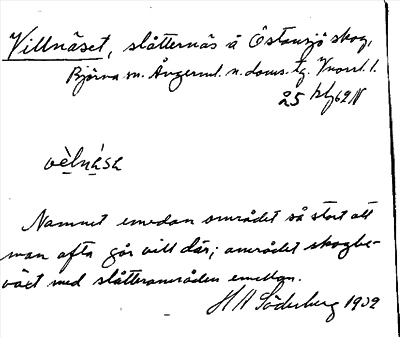 Villnäset, slåtternäs å Östansjö skog,
Björna sn. Ångerml. n. doms. tg. Vnorrl. l.
25
vèlnásα
Namnet emedan området så stort att
man ofta går vill där; området skogbe-
växt med slåtterområden emellan.
H A Söderberg 1932